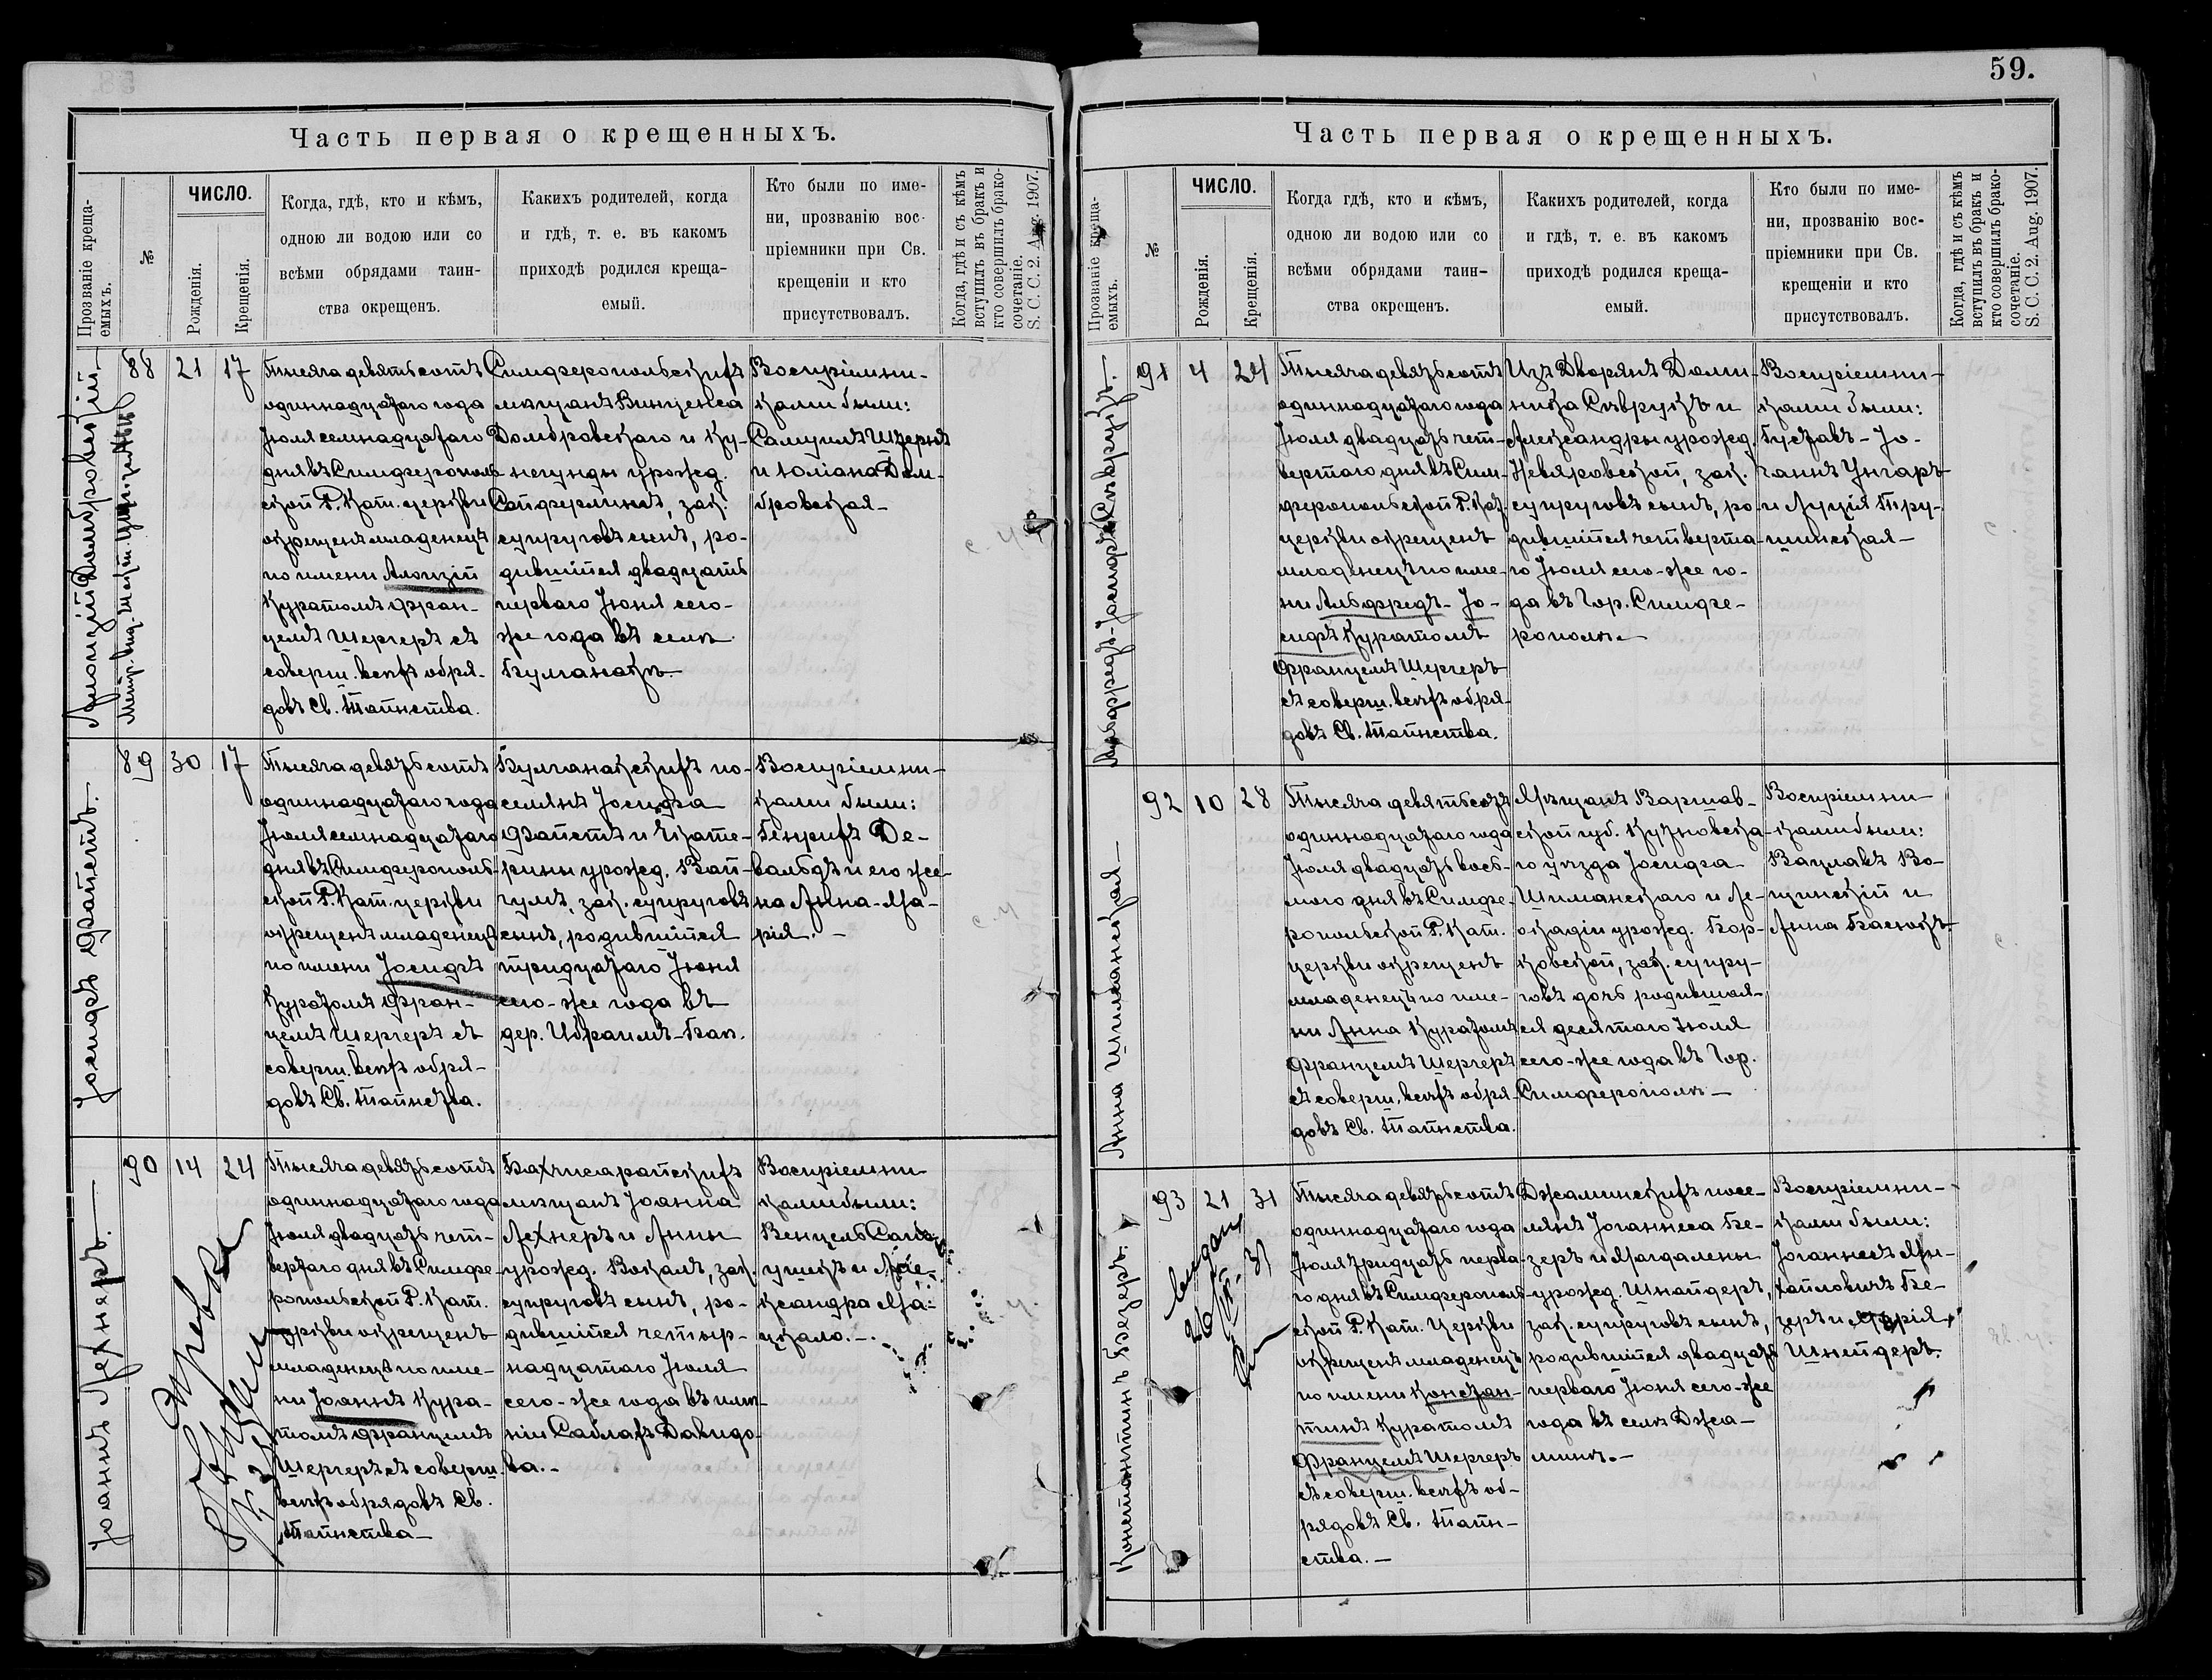 59.
Часть первая о крещенныхъ.
Прозваніе креща-
емыхъ.
№
ЧИСЛО.
Рожденія.
Крещенія.
Когда, гдѣ, кто и кѣмъ,
одною ли водою или со
всѣми обрядами таин-
ства окрещенъ.
Какихъ родителей, когда
и гдѣ, т. е. въ какомъ
приходѣ родился креща-
емый.
Кто были по име-
ни, прозванію вос-
пріемники при Св.
крещеніи и кто
присутствовалъ.
Когда, гдѣ и съ кѣмъ
вступилъ въ бракъ и
кто совершилъ брако-
сочетаніе.
S. C. C. 2. Aug. 1907.
Алоизій Домбровскій
88
21
17
Тысяча девятьсотъ
одиннадцатаго года
Іюля семнадцатаго
дня въ Симферополь-
ской Р. Кат. церкви
окрещенъ младенецъ
по имени Алоизій
Куратомъ Фран-
цемъ Шергеръ съ
соверш. всѣхъ обря-
довъ Св. Таинства.
Симферопольскихъ
мѣщанъ Винцента
Домбровскаго и Ку-
негунды урожд.
зак.
супруговъ сынъ, ро-
дившійся двадцать
перваго Іюня сего-
же года въ селѣ
Булганакѣ.
Воспріемни-
ками были:
Самуилъ
и Юліана Дом-
бровская
Іосифъ Файстъ.
89
30
17
Тысяча девятьсотъ
одиннадцатаго года
Іюля семнадцатаго
дня въ Симферополь-
ской Р. Кат. церкви
окрещенъ младенецъ
по имени Іосифъ
Куратомъ Фран-
цемъ Шергеръ съ
соверш. всѣхъ обря-
довъ Св. Таинства.
Булганакскихъ по-
селянъ Іосифа
Файстъ и Екате-
рины урожд. Вай-
зак. супруговъ
сынъ, родившійся
тридцатаго Іюня
сего-же года въ
дер. Ибраимъ-Бай.
Воспріемни-
ками были:
Генрихъ Де-
вальдъ и его же-
на Анна-Ма-
рія.
Іоаннъ Лехнеръ.
90
14
24
Тысяча девятьсотъ
одиннадцатаго года
Іюля двадцать чет-
вертаго дня въ Симфе-
ропольской Р. Кат.
церкви окрещенъ
младенецъ по име-
ни Іоаннъ Кура-
томъ Францемъ
Шергеръ съ соверш.
всѣхъ обрядовъ Св.
Таинства
Бахчисарайскихъ
мѣщанъ Іоанна
Лехнеръ и Анны
урожд. Вокалъ, зак.
супруговъ сынъ, ро-
дившійся четыр-
надцатаго Іюля
сего-же года въ имѣ-
ніи Саблахъ Давидо-
ва.
Воспріемни-
ками были:
Венцель
Часть первая о крещенныхъ.
Прозваніе креща-
емыхъ.
№
ЧИСЛО.
Рожденія.
Крещенія.
Когда гдѣ, кто и кѣмъ,
одною ли водою или со
всѣми обрядами таин-
ства окрещенъ.
Какихъ родителей, когда
и гдѣ, т. е. въ какомъ
приходѣ родился креща-
емый.
Кто были по име-
ни, прозванію вос-
пріемники при Св.
крещеніи и кто
присутствовалъ.
Когда, гдѣ и съ кѣмъ
вступилъ въ бракъ и
кто совершилъ брако-
сочетаніе.
S. C. C. 2. Aug. 1907.
Альфредъ-Іосифъ Сѣврукъ.
91
4
24
Тысяча девятьсотъ
одиннадцатаго года
Іюля двадцать чет-
вертаго дня въ Сим-
феропольской Р. Кат.
церкви окрещенъ
младенецъ по име-
ни Альфредъ-Іо-
сифъ Куратомъ
Францемъ Шергеръ
съ соверш. всѣхъ обря-
довъ Св. Таинства.
Изъ Дворянъ Доми-
ника Сѣврукъ и
Александры урожд.
Невяровской, зак.
супруговъ сынъ, ро-
дившійся четверта-
го Іюля сего-же го-
да въ Гор. Симфе-
рополѣ.
Воспріемни-
ками были:
Густавъ-Іо-
ганнъ Унгаръ
и Луція Тру-
шинская
Анна Шиманская
92
10
28
Тысяча девятьсотъ
одиннадцатаго года
Іюля двадцать вось-
мого дня въ Симфе-
ропольской Р. Кат.
церкви окрещенъ
младенецъ по име-
ни Анна Куратомъ
Францемъ Шергеръ
съ соверш. всѣхъ обря-
довъ Св. Таинства.
Мѣщанъ Варшав-
ской губ. Кутновска-
го уѣзда Іосифа
Шиманскаго и Ле-
окадіи урожд. Бор-
ковской, зак. супру-
говъ дочь родившая-
ся десятаго Іюля
сего-же года въ Гор.
Симферополѣ
Воспріемни-
ками были:
Вацлавъ Во-
щинскій и
Анна
Константинъ Безеръ.
93
21
31
выдан
Тысяча девятьсотъ
одиннадцатаго года
Іюля тридцать перва-
го дня въ Симферополь-
ской Р. Кат. Церкви
окрещенъ младенецъ
по имени Констан-
тинъ Куратомъ
Францемъ Шергеръ
съ соверш. всѣхъ об-
рядовъ Св. Таин-
ства.
Джаминскихъ посе-
лянъ Іоганнеса Бе-
зеръ и Магдалены
урожд. Шнайдеръ,
зак. супруговъ сынъ,
родившійся двадцать
перваго Іюня сего-же
года въ селѣ Джа-
минъ.
Воспріемни-
ками были:
Іоганнесъ Ми-
хайловичъ Бе-
зеръ и Марія
Шнейдеръ.